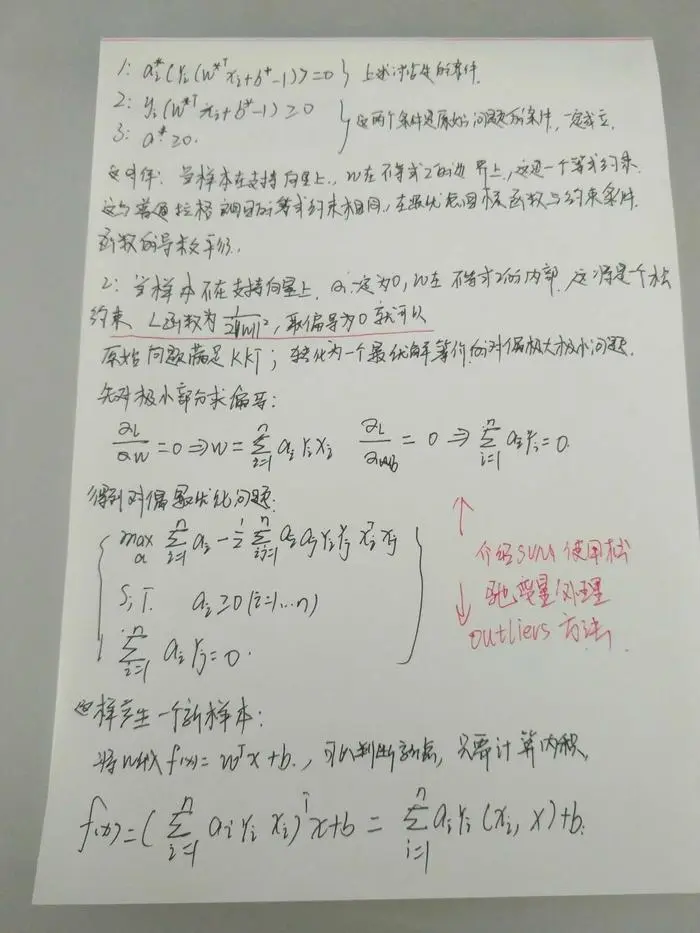 1: a_i^*(y_i(w^{*T}x_i+b^*-1))=0 } 上述讨论过的条件.
2: y_i(w^{*T}x_i+b^*-1)≥0
3: a^*≥0. } 这两个条件是原始问题的条件, 一定成立.
当样本在支持向量上, w在不等式2的边界上, 这是一个等式约束
这与普通拉格朗日的等式约束相同, 在最优点目标函数与约束条件
函数的导数平行.
2: 当样本不在支持向量上, a_i一定为0, w在不等式2的内部, 这
约束 L函数为1/2||w||^2, 取偏导为0就可以
原始问题满足KKT; 转化为一个最优解等价的对偶极大极小问题.
先对极小部分求偏导:
∂L/∂w=0 ⇒ w=∑_{i=1}^n a_i y_i x_i ∂L/∂b=0 ⇒ ∑_{i=1}^n a_i y_i=0.
得到对偶最优化问题:
max_a ∑_{i=1}^n a_i-1/2∑_{i,j=1}^n a_i a_j y_i y_j x_i^T x_j
S,T. a_i≥0(i=1...n)
∑_{i=1}^n a_i y_j=0.
介绍SVM使用松
弛变量处理
outliers方法.
这样产生一个新样本:
将w代入f(x)=w^Tx+b., 可以判断, 只需计算内积.
f(x)=(∑_{i=1}^n a_i y_i x_i)^T x+b=∑_{i=1}^n a_i y_i(x_i, x)+b.